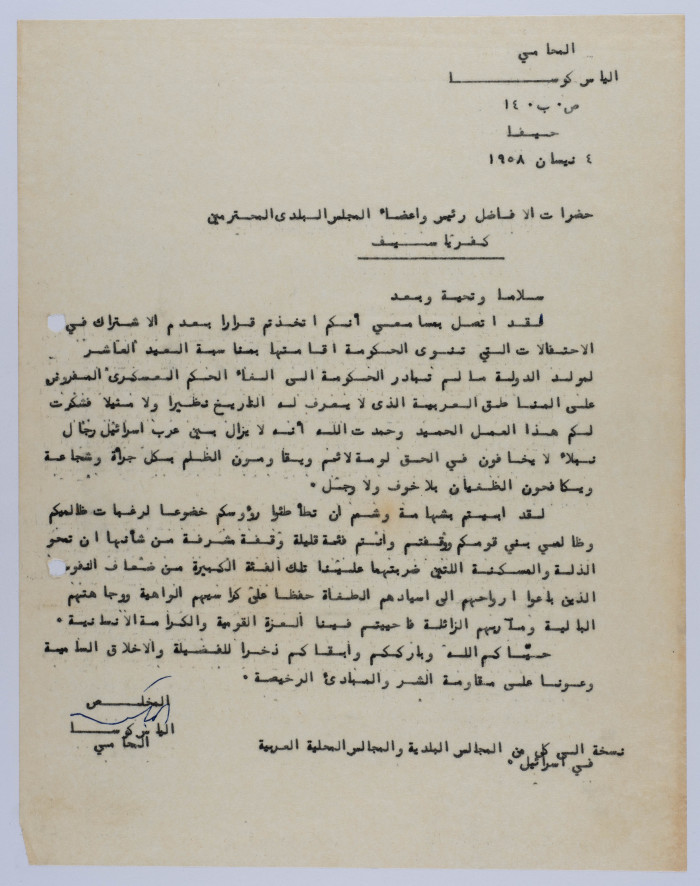 المحامي
الياس كوسا
ص٠ب٠ ١٤٠
حيفا
٤ نيسان ١٩٥٨
حضرات الافاضل رئيس واعضاء المجلس البلدى المحترمين
كفرياسيف
سلاما وتحية وبعد
لقد اتصل بمسامعي أنكم اتخذتم قرارا بعدم الاشتراك في
الاحتفالات التي تنوى الحكومة اقامتها بمناسبة العيد العاشر
لمولد الدولة مالم تبادر الحكومة الى الغاء الحكم العسكرى المفروض
على المناطق العربية الذى لا يعرف له التاريخ نظيرا ولا مثيلا فشكرت
لكم هذا العمل الحميد وحمدت الله أنه لا يزال بين عرب اسرائيل رجال
نبلاء لا يخافون في الحق لومة لائم ويقاومون الظلم بكل جرأة وشجاعة
ويكافحون الطغيان بلا خوف ولا وجل٠
لقد ابيتم بشهامة وشمم ان تطأطئوا رؤوسكم خضوعا لرغبات ظالميكم
وظالمي بني قومكم ووقفتم وأنتم فئة قليلة وقفة مشرفة من شأنها ان تمحو
الذلة والمسكنة اللتين ضربتهما علينا تلك الفئة الكبيرة من ضعاف النفوس
الذين باعوا ارواحهم الى اسيادهم الطغاة حفظا على كراسيهم الواهية ووجاهتهم
البالية ومآربهم الزائلة فاحييتم فينا العزة القومية والكرامة الانسانية٠
حيّاكم الله وبارككم وأبقاكم ذخرا للفضيلة والاخلاق السامية
وعونا على مقاومة الشر والمبادئ الرخيصة٠
المخلص
الياس كوسا
المحامي
نسخة الى كل من المجالس البلدية والمجالس المحلية العربية
في اسرائيل٠